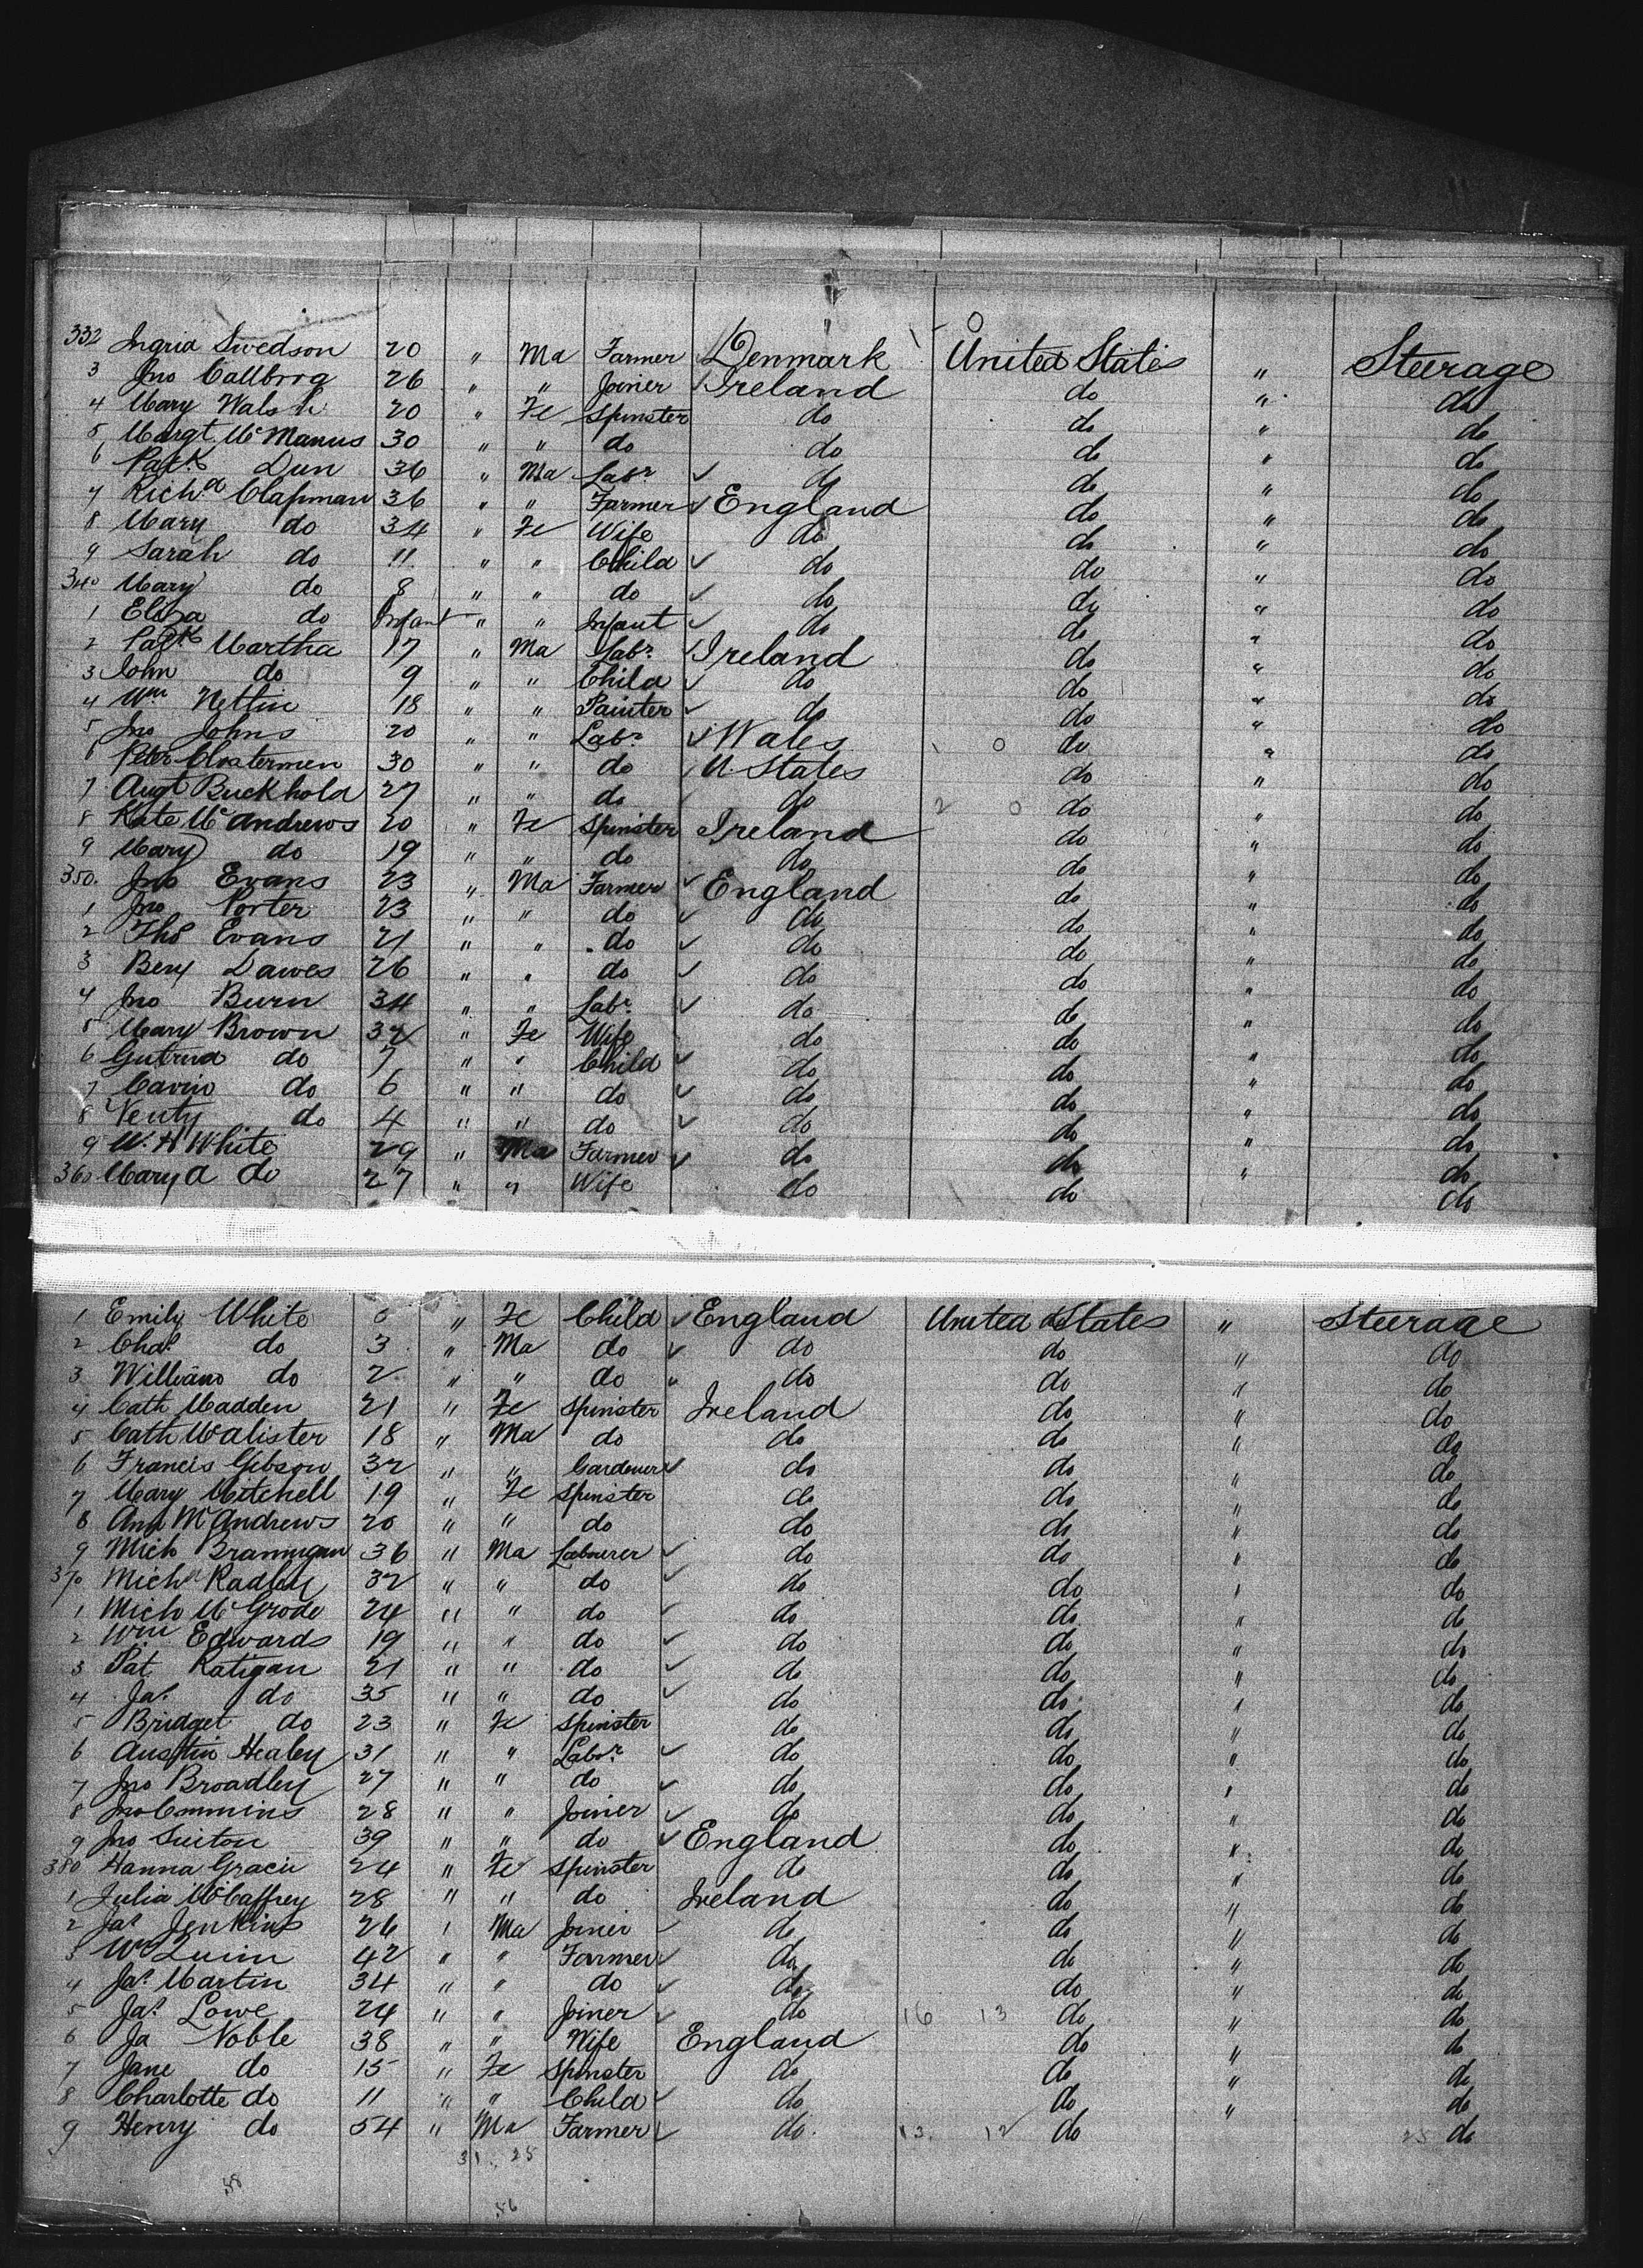 332 Ingrid Swedson 20 " Ma Farmer Denmark United States " Steerage
3 Jno Callbrra 26 " " Joiner Ireland do " do
4 Mary Walsh 20 " Fe Spinster do do " do
5 Margt McManus 30 " " do do do " do
6 Patk Dun 36 " Ma Labr do do " do
7 Richd Clapman 36 " " Farmer England do " do
8 Mary do 34 " Fe Wife do do " do
9 Sarah do 11 " " Child do do " do
340 Mary do 8 " " do do do " do
1 Eliza do Infant " " Infant do do " do
2 Patk Martha 17 " Ma Labr Ireland do " do
3 John do 9 " " Child do do " do
4 Wm Nettin 18 " " Painter do do " do
5 Jno Johns 20 " " Labr Wales 0 do " do
6 Peter Clostermen 30 " " do U. States do " do
7 Augt Buckhold 27 " " do do 2 0 do " do
8 Kate McAndrews 20 " Fe Spinster Ireland do " do
9 Mary do 19 " " do do do " do
350. Jno Evans 23 " Ma Farmer England do " do
1 Jno Porter 23 " " do do do " do
2 Thos Evans 21 " " do do do " do
3 Benj Dawes 26 " " do do do " do
4 Jno Burn 34 " " Labr do do " do
5 Mary Brown 32 " Fe Wife do do " do
6 Gutrud do 7 " " Child do do " do
7 do 6 " " do do do " do
8 Venty do 4 " " do do do " do
9 W. H White 29 " Ma Farmer do do " do
360 Mary A do 27 " " Wife do do do
1 Emily White 6 " Fe Child England United States " Steerage
2 Chas do 3 " Ma do do do " do
3 William do 2 " " do do do " do
4 Cath Madden 21 " Fe Spinster Ireland do " do
5 Cath McAlister 18 " Ma do do do " do
6 Francis Gibson 32 " " Gardener do do " do
7 Mary Mitchell 19 " Fe Spinster do do " do
8 Ann McAndrews 20 " " do do do " do
9 Mich Brannigan 36 " Ma Labourer do do " do
370 Michl Radley 32 " " do do do " do
1 Mich McGrode 24 " " do do do " do
2 Wm Edwards 19 " " do do do " do
3 Pat Ratigan 21 " " do do do " do
4 Jas do 35 " " do do do " do
5 Bridget do 23 " Fe Spinster do do " do
6 Austin Healey 31 " " Labr do do " do
7 Jno Broadley 27 " " do do do " do
8 Jno Cummins 28 " " Joiner do do " do
9 Jno Suiton 39 " " do England do " do
380 Hanna Gracie 24 " Fe Spinster do do " do
1 Julia McCaffrey 28 " " do Ireland do " do
2 Jas Jenkins 26 " Ma Joiner do do " do
3 Wm Quinn 42 " " Farmer do do " do
4 Jas Martin 34 " " do do do " do
5 Jas Lowe 24 " " Joiner do 16 13 do " do
6 Ja Noble 38 " " Wife England do " do
7 Jane do 15 " Fe Spinster do do " do
8 Charlotte do 11 " " Child do do " do
9 Henry do 54 " Ma Farmer do. 13. 12 do 25 do
31. 25
56